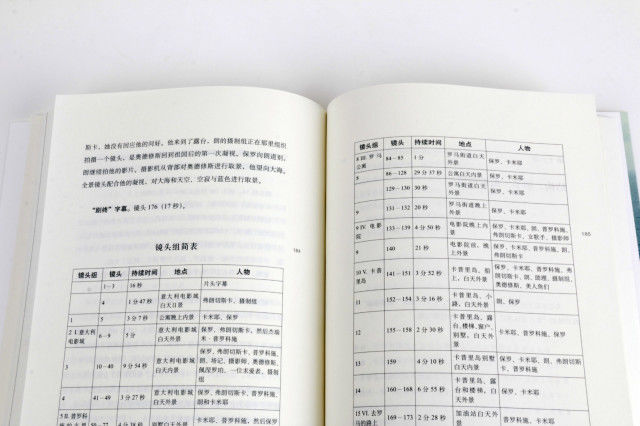 斯卡，她没有回应他的问好。他来到了露台，朗的摄制组正在那里组织
拍摄一个镜头，是奥德修斯回到祖国后的第一次凝视。保罗向朗道别，
朗继续拍他的影片。摄影机从背部对奥德修斯进行取景，他望向大海。
全景镜头配合他的凝视，对大海和天空、空寂与蓝色进行取景。
“剧终”字幕。镜头 176（17 秒）。
镜头组简表
184
镜头组 镜头 持续时间 地点 人物
1—3 16 秒 片头字幕
4 1 分 47 秒 意大利电影城白天日景 弗朗切斯卡、摄制组
1 5 3 分 7 秒 公寓晚上内景 卡米耶、保罗
2 I. 意大利电影城 6—9 5 分 意大利电影城白天外景 保罗、弗朗切斯卡，然后杰瑞米·普罗科施
3 10—40 9 分 54 秒 意大利电影城白天内景 保罗、弗朗切斯卡、普罗科施、朗、场记、摄影师、奥德修斯、佩涅罗珀、一位求爱者、摄制组
4 41—49 3 分 27 秒 意大利电影城白天外景 保罗、弗朗切斯卡、普罗科施、朗和卡米耶
5 II. 普罗科
卡米耶、普罗科施，然后保罗
镜头组 镜头 持续时间 地点 人物
8 III. 罗马公寓 84—85 1 分 罗马街道白天外景 保罗、卡米耶
5 86—128 29 分 37 秒 公寓白天内景 保罗、卡米耶
129—130 30 秒 罗马街道白天外景 保罗、卡米耶
9 131—132 20 秒 罗马街道晚上外景 保罗、卡米耶
9 IV. 电影院 133—139 4 分 50 秒 电影院晚上内景 保罗、卡米耶、朗、普罗科施、弗朗切斯卡、女歌手、摄影师
9 140 21 秒 电影院前，晚上外景 保罗、卡米耶、普罗科施、朗、弗朗切斯卡
10 V. 卡普里岛 141—151 3 分 52 秒 卡普里岛，船上，白天外景 保罗、卡米耶、普罗科施、弗朗切斯卡、朗、助理、摄制组、奥德修斯、美人鱼们
11 152—154 3 分 16 秒 卡普里岛，小路，白天外景 朗、保罗
12 155—158 2 分 30 秒 卡普里岛，露台，楼梯，窗户，别墅，白天外景 卡米耶、普罗科施、保罗
13 159 4 分 10 秒 卡普里岛别墅白天内景 保罗、卡米耶、朗、弗朗切斯卡、普罗科施
14 160—168 6 分 55 秒 卡普里岛，露台和楼梯，白天外景 保罗、卡米耶
15 VI. 去罗马的路上 169—173 2 分 28 秒 加油站白天外景 普罗科施、卡米耶
185